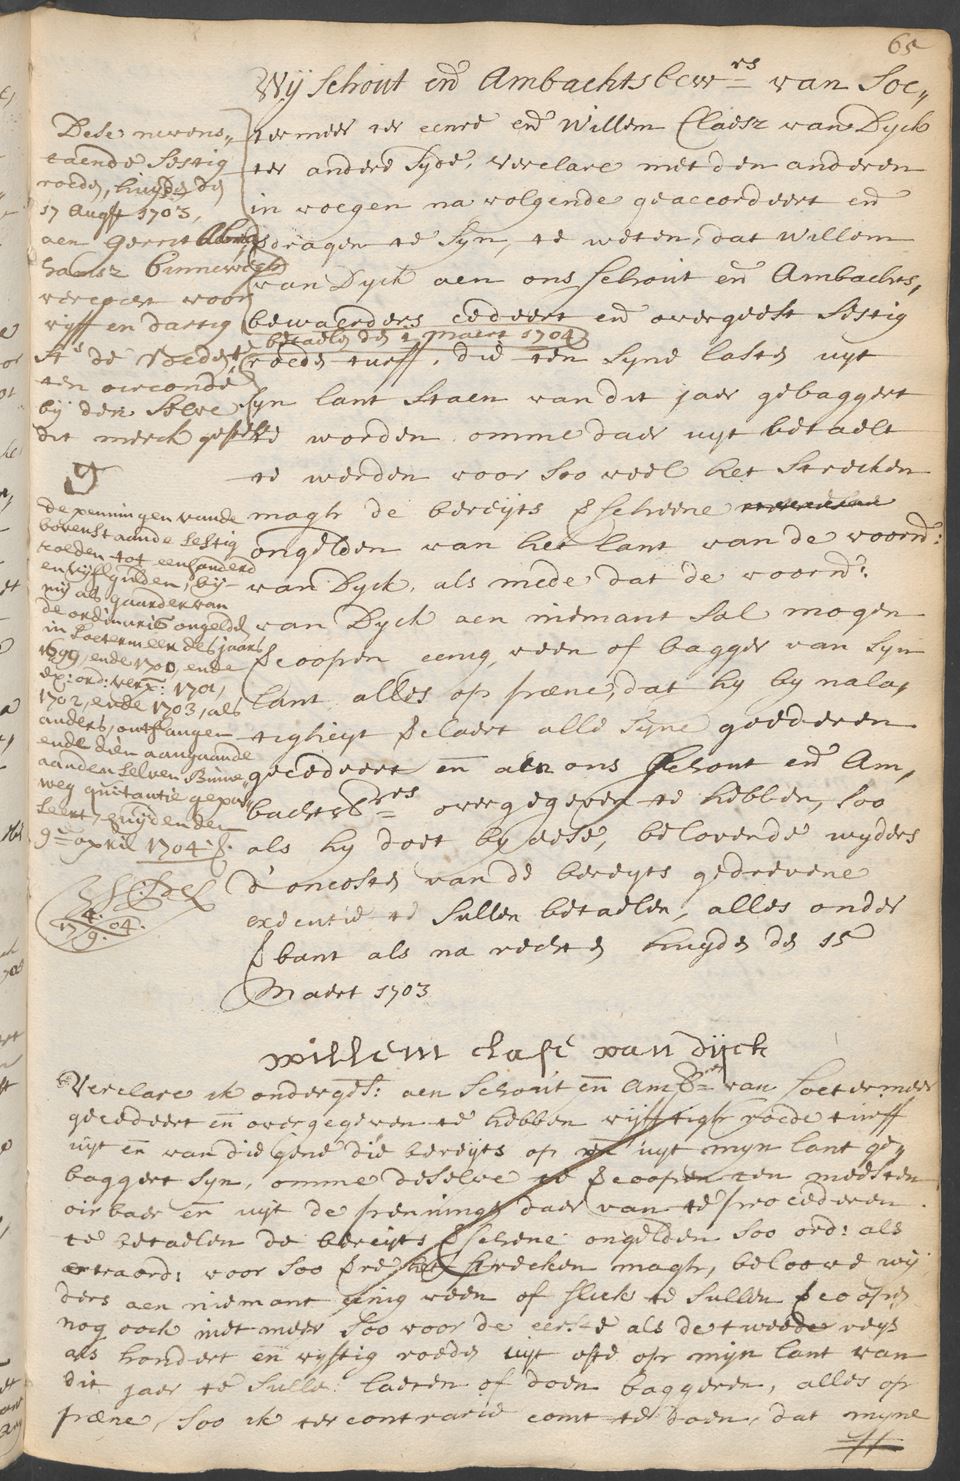 65
Wij Schout en Ambachtsbewrs van Soe„
termeer ter eenre en Willem Claesz van Dyck
ter andere Syde, verclare met den anderen
in voegen navolgende geaccordeert en
verdragen te syn, te weten, dat Willem
van Dyck aen ons Schout en Ambachts,
bewaerders cedeert en overgeeft sestig
betaelt den 1 Maert 1704
roeden turff, die ten syne lasten uyt
syn lant staen van dit jaer gebaggert
te worden omme daer uyt betaelt
te werden voor soo veel het strecken
magh de bereyts verscheene
ongelden van het lant van de voorn:
van Dyck, als mede dat de voorn:
van Dyck aen niemant sal mogen
vercoopen eenig veen of bagger van syn
lant, alles op pæne, dat hy by nala,
tigheyt verclaert alle syne goederen
gecedeert en aen ons Schout en Am,
bachtsbrs overgegeven te hebben, soo
als hy doet by dese, belovende wyders
d'oncosten van de bereyts gedrevene
executie te sullen betaelen, alles onder
verbant als na rechten huyden den 15
Maert 1703
willem clase van dijck
Dese nevens„
taende sestig
roeden, huyden den
17 Augst 1703,
aen Gerrit Abra
hamsz Binnewegh
vercoft voor
vyff en dartig
st de Roede,
ten oirconde
by den selve
dit merck gestelt
De penningen vande
bovenstaande sestig
roeden tot een hondert
en vijf gulden, bij
mij als gaarder van
de ordinaris ongelden
in Soetermeer des jaars
1699, ende 1700, ende
ex: ord: verp: 1701,
1702, ende 1703, als
anders, ontfangen
ende dien aangaande
aanden selven Binne„
weg quitantie gepas„
seert, huijden den
9en april 1704
4.
17 04.
9.
Verclare ik ondergesz: aen Schout en Ambrs van Soetermeer
gecedeert en overgegeven te hebben vyfftigh roede turff
uyt en van die gene die bereyts op en uyt myn lant ge„
baggert syn, omme deselve te vercoopen ten meesten
oirbaer en uyt de penningen daer van te procederen
te betaelen de bereyts verschene ongelden soo ord: als
extraord: voor soo verre het strecken magh, beloove wy
ders aen niemant eenig veen of slick te sullen vercoopen
nog ook niet meer soo voor de eerste als de tweede reys
als hondert en vyftig roeden uyt ofte op mijn lant van
dit jaer te sullen laeten of doen baggeren, alles op
pæne, soo ik ter contrarie comt te doen, dat myne